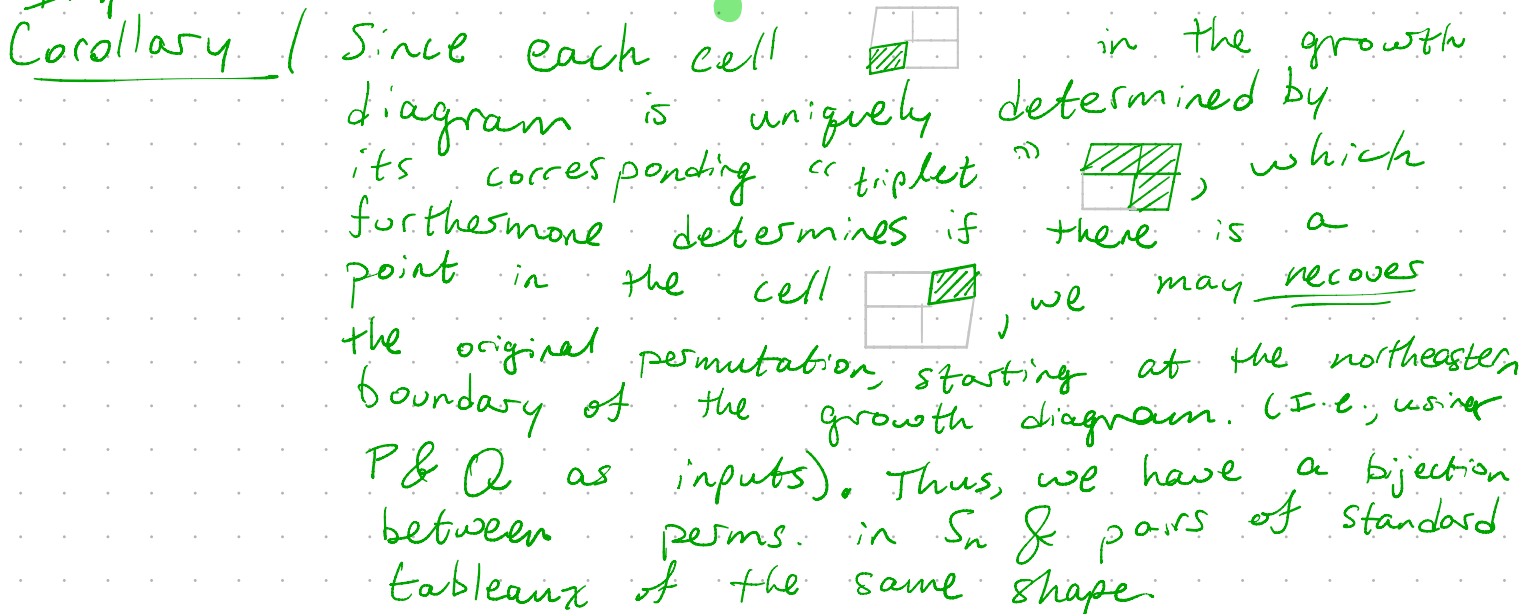 Corollary / Since each cell in the growth
diagram is uniquely determined by
its corresponding "triplet", which
furthermore determines if there is a
point in the cell , we may recover
the original permutation, starting at the northeastern
boundary of the growth diagram. (I.e., using
P & Q as inputs). Thus, we have a bijection
between perms. in Sn & pairs of standard
tableaux of the same shape.